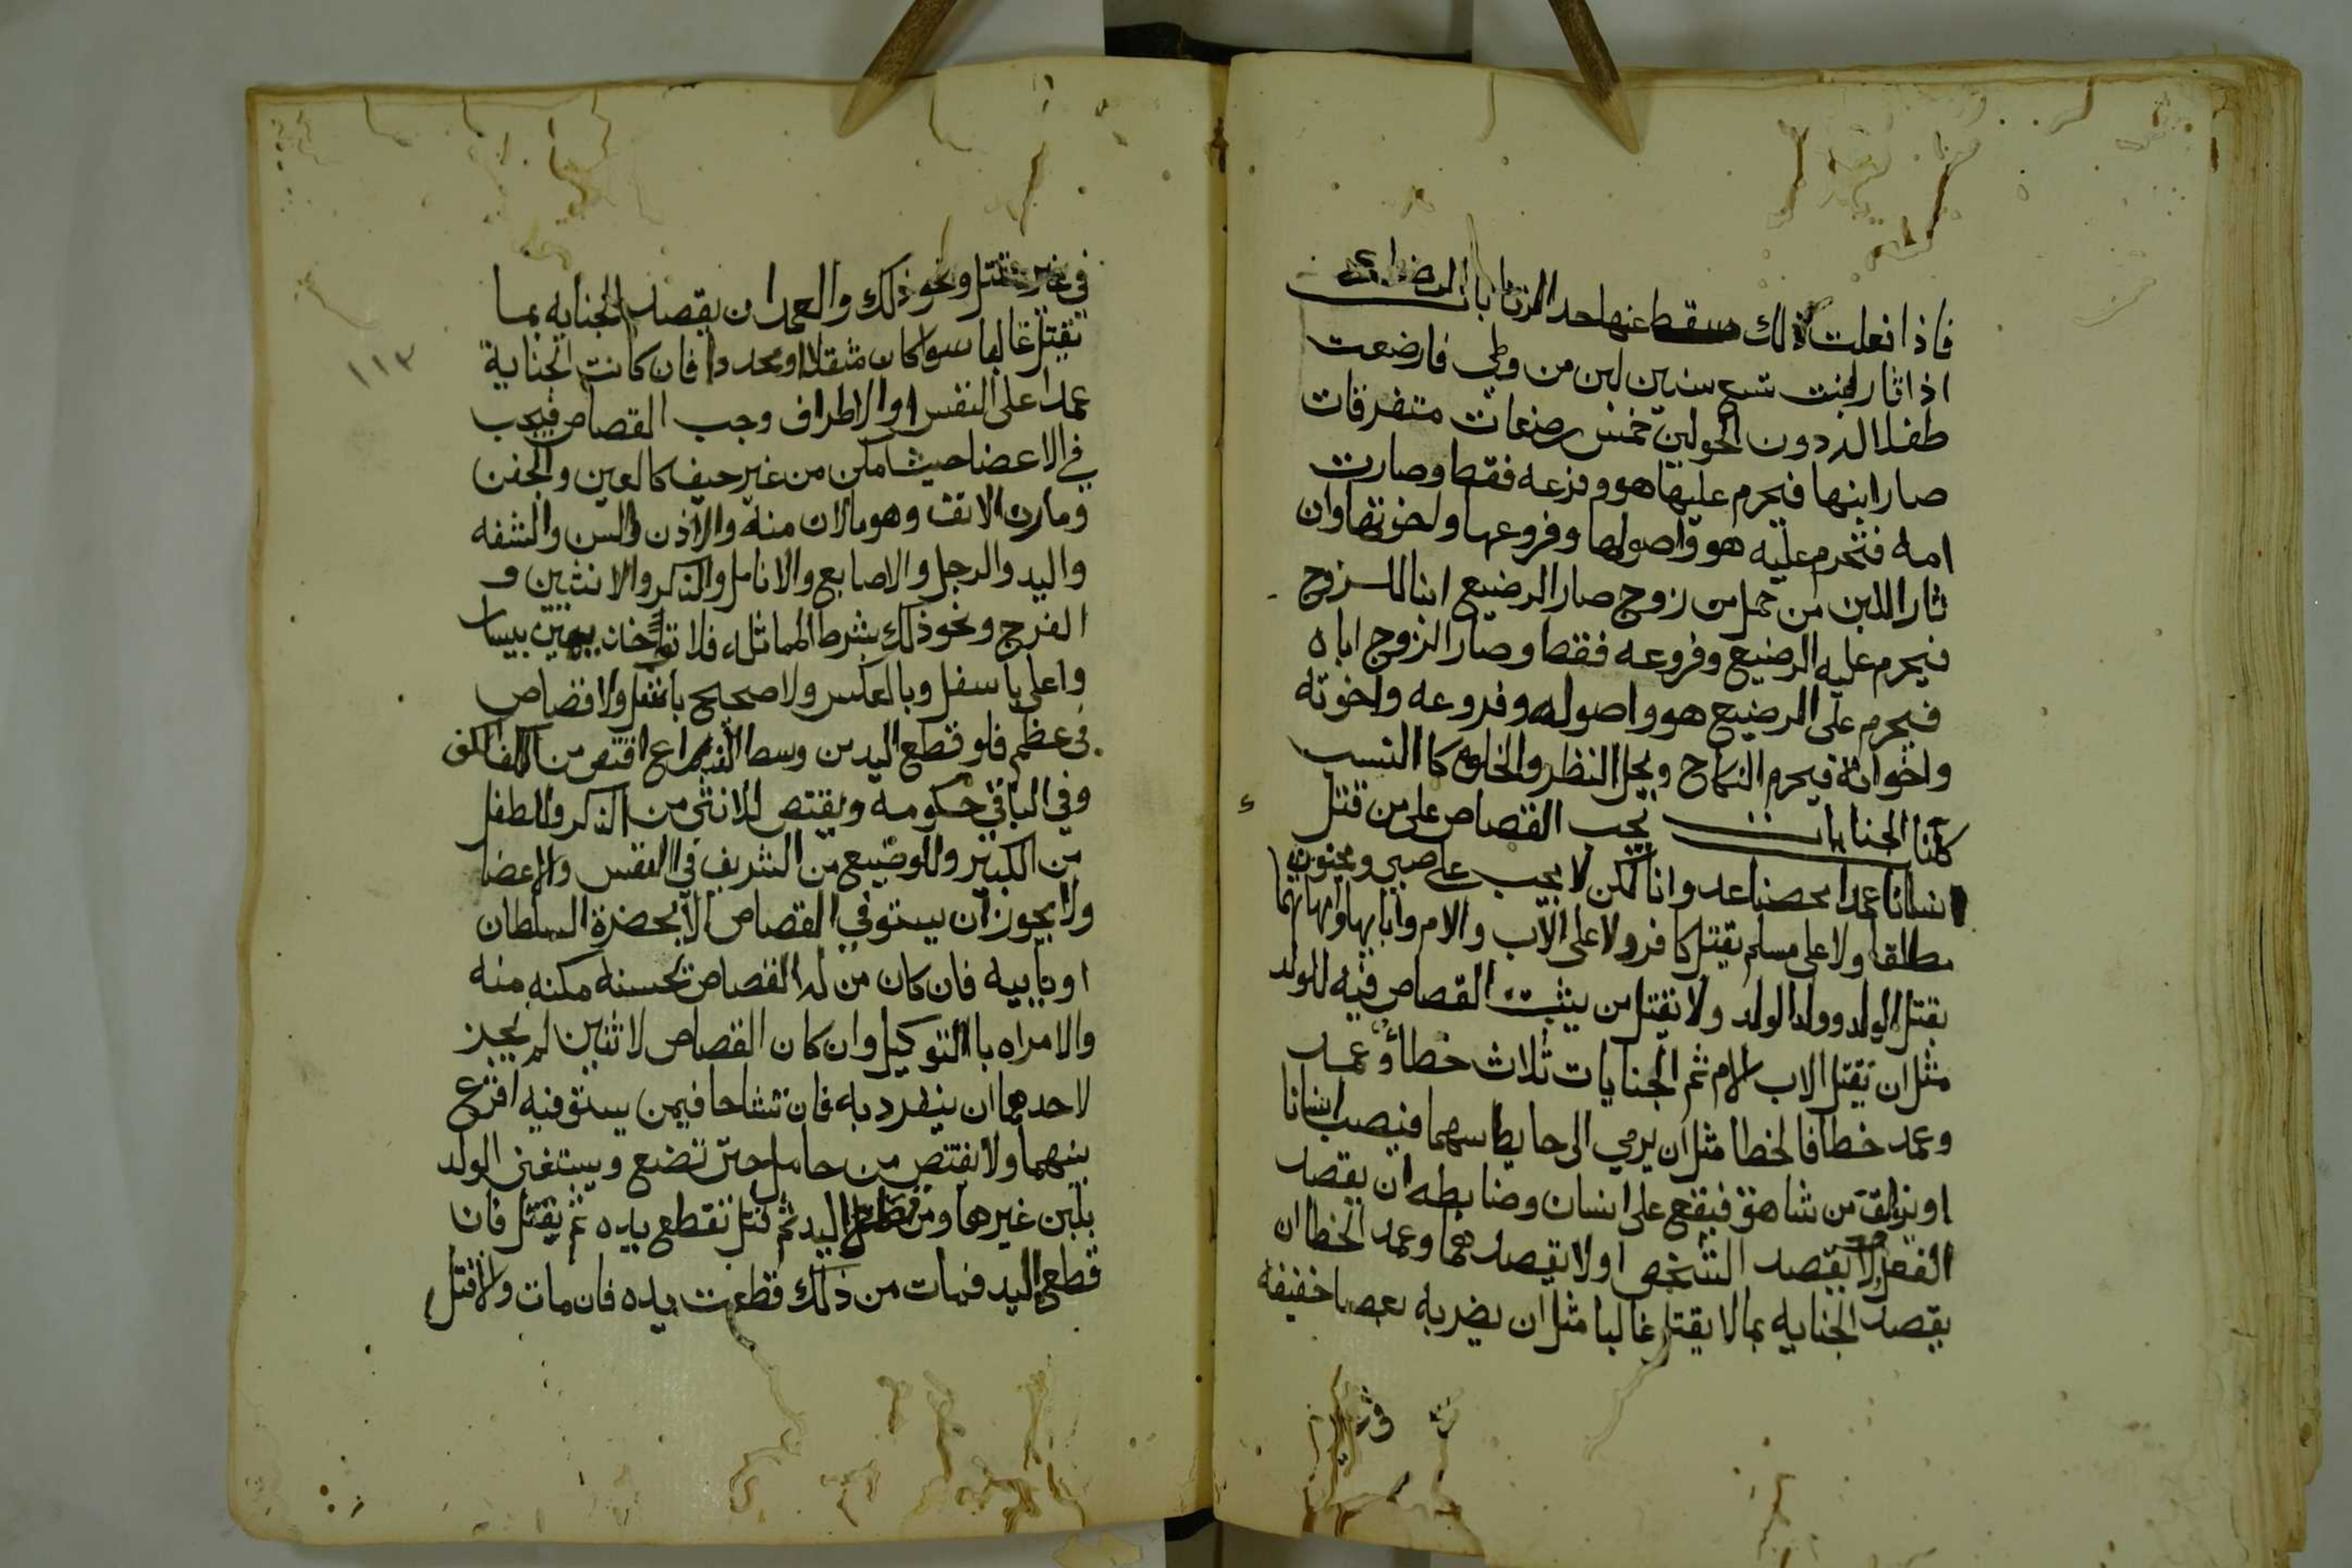 فاذا فعلت ذلك سقط عنها حد الزنا باب الرضاع
اذا ثار لبنت تسع سنين لبن من وطي فارضعت
طفلا له دون الحولين خمس رضعات متفرقات
صار ابنها فيحرم عليها هو وفرعه فقط وصارت
امه فتحرم عليه هو واصولها وفروعها واخوتها وان
ثار اللبن من حمل من زوج صار الرضيع ابنا للزوج
فيحرم عليه الرضيع وفروعه فقط وصار الزوج اباه
فيحرم على الرضيع هو واصوله وفروعه واخوته
واخواته فيحرم النكاح ويحل النظر والخلوه كا النسب
كتاب الجنايات يجب القصاص على من قتل
انسانا عمدا محضا عدوانا لكن لا يجب على صبي ومجنون
مطلقا ولا على مسلم يقتل كافر ولا على الاب والام وابايها وامهاتهما
بقتل الولد وولد الولد ولا يقتل من يثبت القصاص فيه للولد
مثل ان يقتل الاب الام ثم الجنايات ثلاث خطأ وعمد
وعمد خطا فالخطا مثل ان يرمي الى حايط سهما فيصيب انسانا
او يزلق من شاهق فيقع على انسان وضابطه ان يقصد
الفعل ولا يقصد الشخص او لا يقصدهما وعمد الخطا ان
يقصد الجنايه بما لا يقتل غالبا مثل ان يضربه بعصا خفيفه
في غير مقتل ونحو ذلك والعمد ان يقصد الجنايه بما
يقتل غالبا سوا كان مثقلا او محددا فان كانت الجناية
عمدا على النفس او الاطراف وجب القصاص فيجب
في الاعضا حيث امكن من غير حيف كالعين والجفن
ومارن الانف وهو مالان منه والاذن والسن والشفه
واليد والرجل والاصابع والانامل والذكر والانثيين و
الفرج ونحو ذلك بشرط المماثله فلا تؤخذ يمين بيسار
واعلى باسفل وبالعكس ولا صحيح باشل ولا قصاص
في عظم فلو قطع اليد من وسط الذراع اقتص من الكف
وفي الباقي حكومه ويقتص للانثى من الذكر والطفل
من الكبير وللوضيع من الشريف في النفس والاعضا
ولا يجوز ان يستوفي القصاص الا بحضرة السلطان
او نايبه فان كان من له القصاص يحسنه مكنه منه
والا امراه باالتوكيل وان كان القصاص لاثنين لم يجز
لاحدهما ان ينفرد به فان تشاحا فيمن يستوفيه اقرع
بينهما ولا يقتص من حامل حتى تضع ويستغنى الولد
بلبن غيرها ومن قطع اليد ثم قتل تقطع يده ثم يقتل فان
قطع اليد فمات من ذلك قطعت يده فان مات والا قتل
١١٣